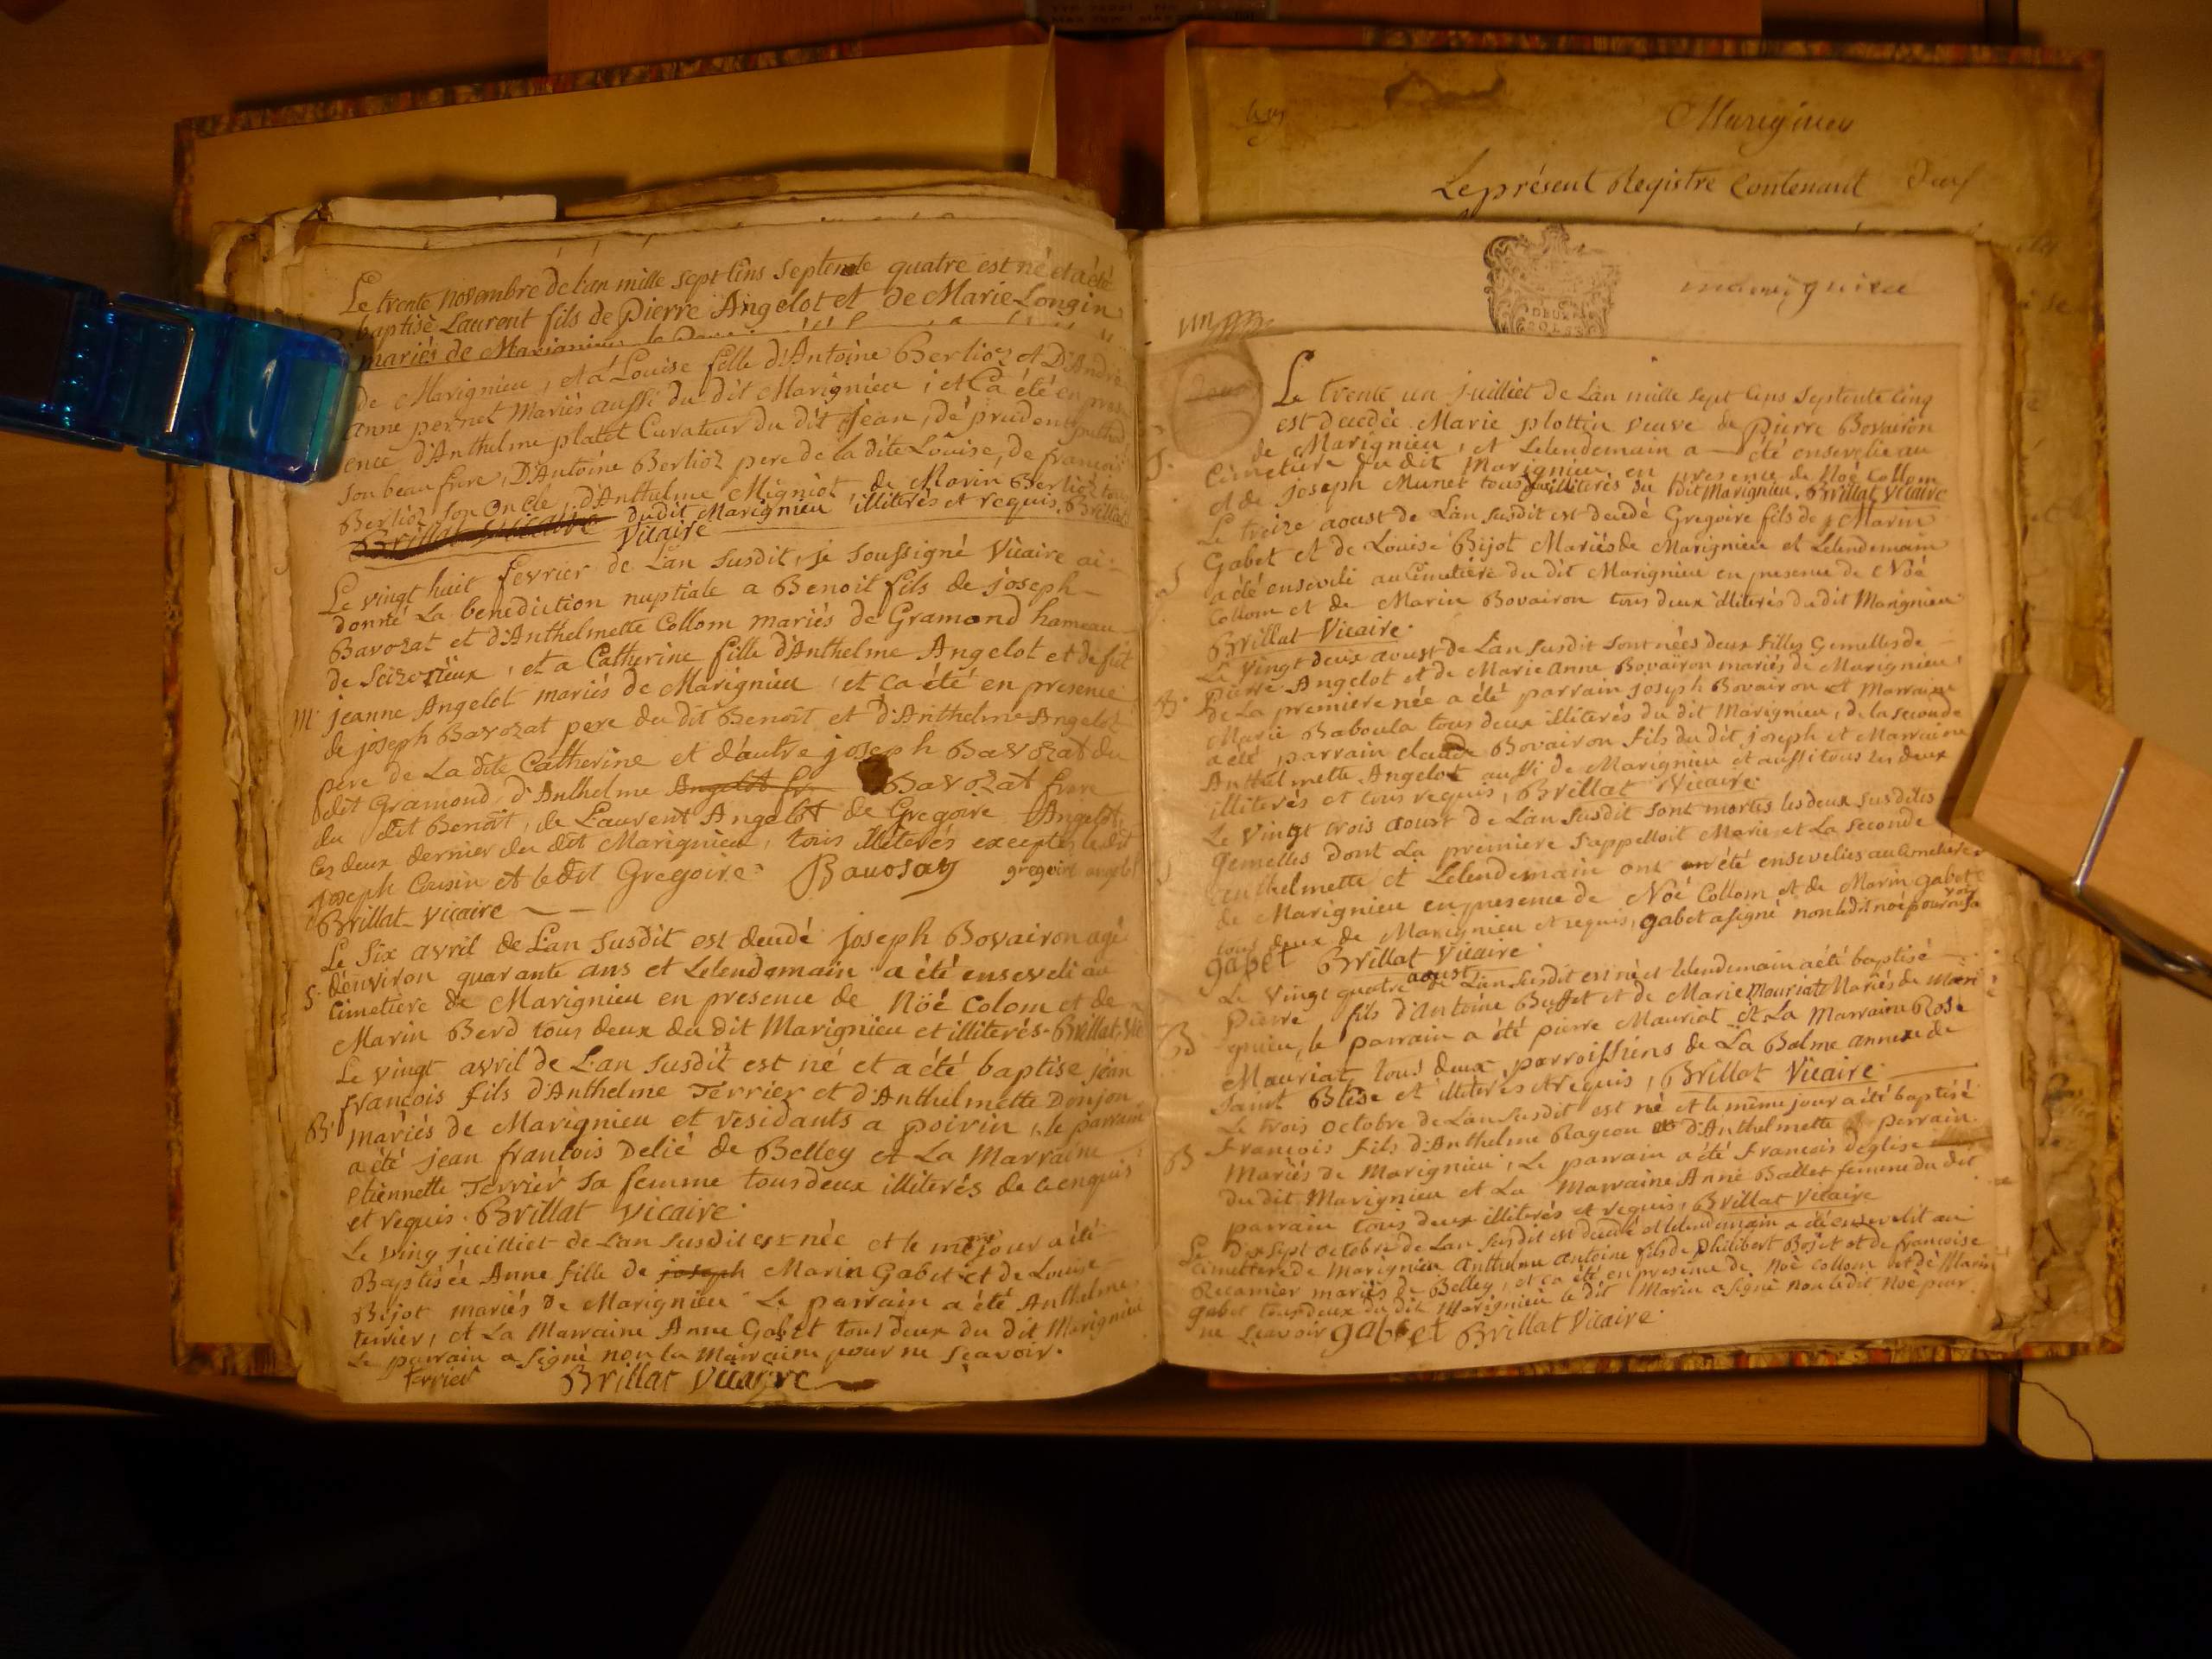 Le trente novembre de l'an mille sept cens septente quatre est né et a été
baptisé Laurent fils de Pierre Angelot et de Marie Longin
mariés de Marignieu
de Marignieu, et a Louise fille d'Antoine Berlioz et D'Andre
anne pernet Mariés aussi du dit Marignieu; et Ca été en pres
ence d'Anthelme platet Curateur du dit Jean, de prudent
son beau frere, D'Antoine Berlioz pere de la dite Louise, de francois
Berlioz son Oncle, d'Anthelme Migniot, de Marin Berlioz tous
Brillat Vicaire dudit Marignieu illiterés et requis. Brillat
Vicaire
Le vingt huit fevrier de L'an susdit, je soussigné Vicaire ai
donné La benediction nuptiale a Benoit fils de joseph
Bavozat et d'Anthelmette Collom mariés de Gramond hameau
de Seizerieux, et a Catherine fille d'Anthelme Angelot et de fut
M. jeanne Angelot mariés de Marignieu, et ca été en presence
de joseph Bavozat pere du dit Benoit et d'Anthelme Angelot
pere de La dite Catherine et d'autre joseph Bavozat du
dit Gramond, d'Anthelme Angelot fr Bavozat frere
du dit Benoit, de Laurent Angelot de Gregoire Angelot,
Ces deux dernier du dit Marignieu, tous illiterés exceptés le dit
joseph Cousin et le dit Gregoire. Bavosay gregoire angelot
Brillat Vicaire
Le Six avril de L'an susdit est decedé joseph Bovairon agé
S. d'environ quarante ans et Lelendemain a été enseveli au
Cimetiere de Marignieu en presence de Nöé Colom et de
Marin Berd tous deux du dit Marignieu et illiterés. Brillat Vic
Le vingt avril de L'an susdit est né et a été baptisé jean
francois fils d'Anthelme Terrier et d'Anthelmette Donjon
B. mariés de Marignieu et residants a poirin, le parrain
a été jean francois Delié de Belley et La Marraine
Etiennette Terrier sa femme tous deux illiterés de ce enquis
et requis. Brillat Vicaire.
Le ving juilliet de L'an susdit est née et le même jour a été
Baptisée Anne fille de joseph Marin Gabet et de Louise
Bijot mariés de Marignieu Le parrain a été Anthelme
terrier, et La Marraine Anne Gabet tous deux du dit Marignieu
Le parrain a signé non la Marraine pour ne scavoir.
terrier Brillat Vicaire
Marignieu
Le présent Registre Contenant
marignieu
Le trente un juilliet de L'an mille sept cens septente cinq
est decedée Marie plottin veuve de pierre Bovairon
de Marignieu, et Lelendemain a été ensevelie au
S. Cimetiere du dit Marignieu, en presence de Noé Collom
et de joseph Munet tous deux illiterés du dit Marignieu. Brillat Vicaire
Le treize aoust de L'an susdit est decedé Gregoire fils de Marin
Gabet et de Louise Bijot Mariés de Marignieu et Lelendemain
S a été enseveli au Cimetiere du dit Marignieu en presence de Noé
Collom et de Marin Bovairon tous deux illiterés du dit Marignieu
Brillat Vicaire.
Le vingt deux aoust de L'an susdit sont nées deux filles Gemelles de
Pierre Angelot et de Marie anne Bovairon mariés de Marignieu,
B. de La premiere née a été parrain joseph Bovairon et Marraine
Marie Baboula tous deux illiterés du dit Marignieu, de la seconde
a été parrain claude Bovairon fils du dit joseph et Marraine
Anthelmette Angelot aussi de Marignieu et aussi tous les deux
illiterés et tous requis, Brillat Vicaire.
Le Vingt trois aoust de L'an susdit sont mortes les deux susdites
gemelles dont La premiere s'appelloit Marie et La seconde
S enthelmette et Lelendemain ont été ensevelies au Cimetiere
de Marignieu en presence de Noé Collom et de Marin gabet
tous deux de Marignieu et requis, gabet a signé non le dit noé pour ne sa
voir
gabet Brillat Vicaire
Le Vingt quatre aoust de L'an susdit est né et lelendemain a été baptisé
Pierre fils d'Antoine Buffet et de Marie Mauriat Mariés de Mari
B gnieu, le parrain a été pierre Mauriat et La Marraine Rose
Mauriat tous deux parroissiens de La Balme annexe de
Saint Blese et illiterés et requis, Brillat Vicaire.
Le trois octobre de L'an susdit est né et le même jour a été baptisé
Francois fils d'Anthelme Rayeon et d'Anthelmette perrain
B Mariés de Marignieu, Le parrain a été Francois deglise
du dit Marignieu et La Marraine Anne Ballet femme du dit
parrain tous deux illiterés et requis, Brillat Vicaire
Le Dix sept octobre de L'an susdit est decedé et lelendemain a été enselelit au
cimettere de Marignieu Anthelme antoine fils de philibert Boset et de francoise
Recamier mariés de Belley, et ca été en presence de Noé collom et de Marin
gabet tous deux du dit Marignieu le dit Marin a signé non le dit Noé pour
ne scavoir gabet Brillat Vicaire.